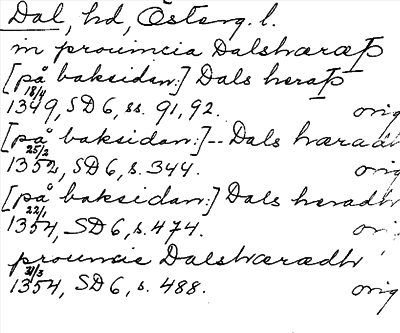 Dal, hd, Österg. l.
in prouincia Dalshæræþ
[på baksidan:] Dals heraþ
18/4 1349, SD 6, ss. 91, 92. orig
[på baksidan:] -- Dals hæradh
25/2 1352, SD 6, s. 344. orig
[på baksidan:] Dals heradh
22/1 1354, SD 6, s. 474. ori
prouincie Dalshærædh
31/3 1354, SD 6, s. 488. orig